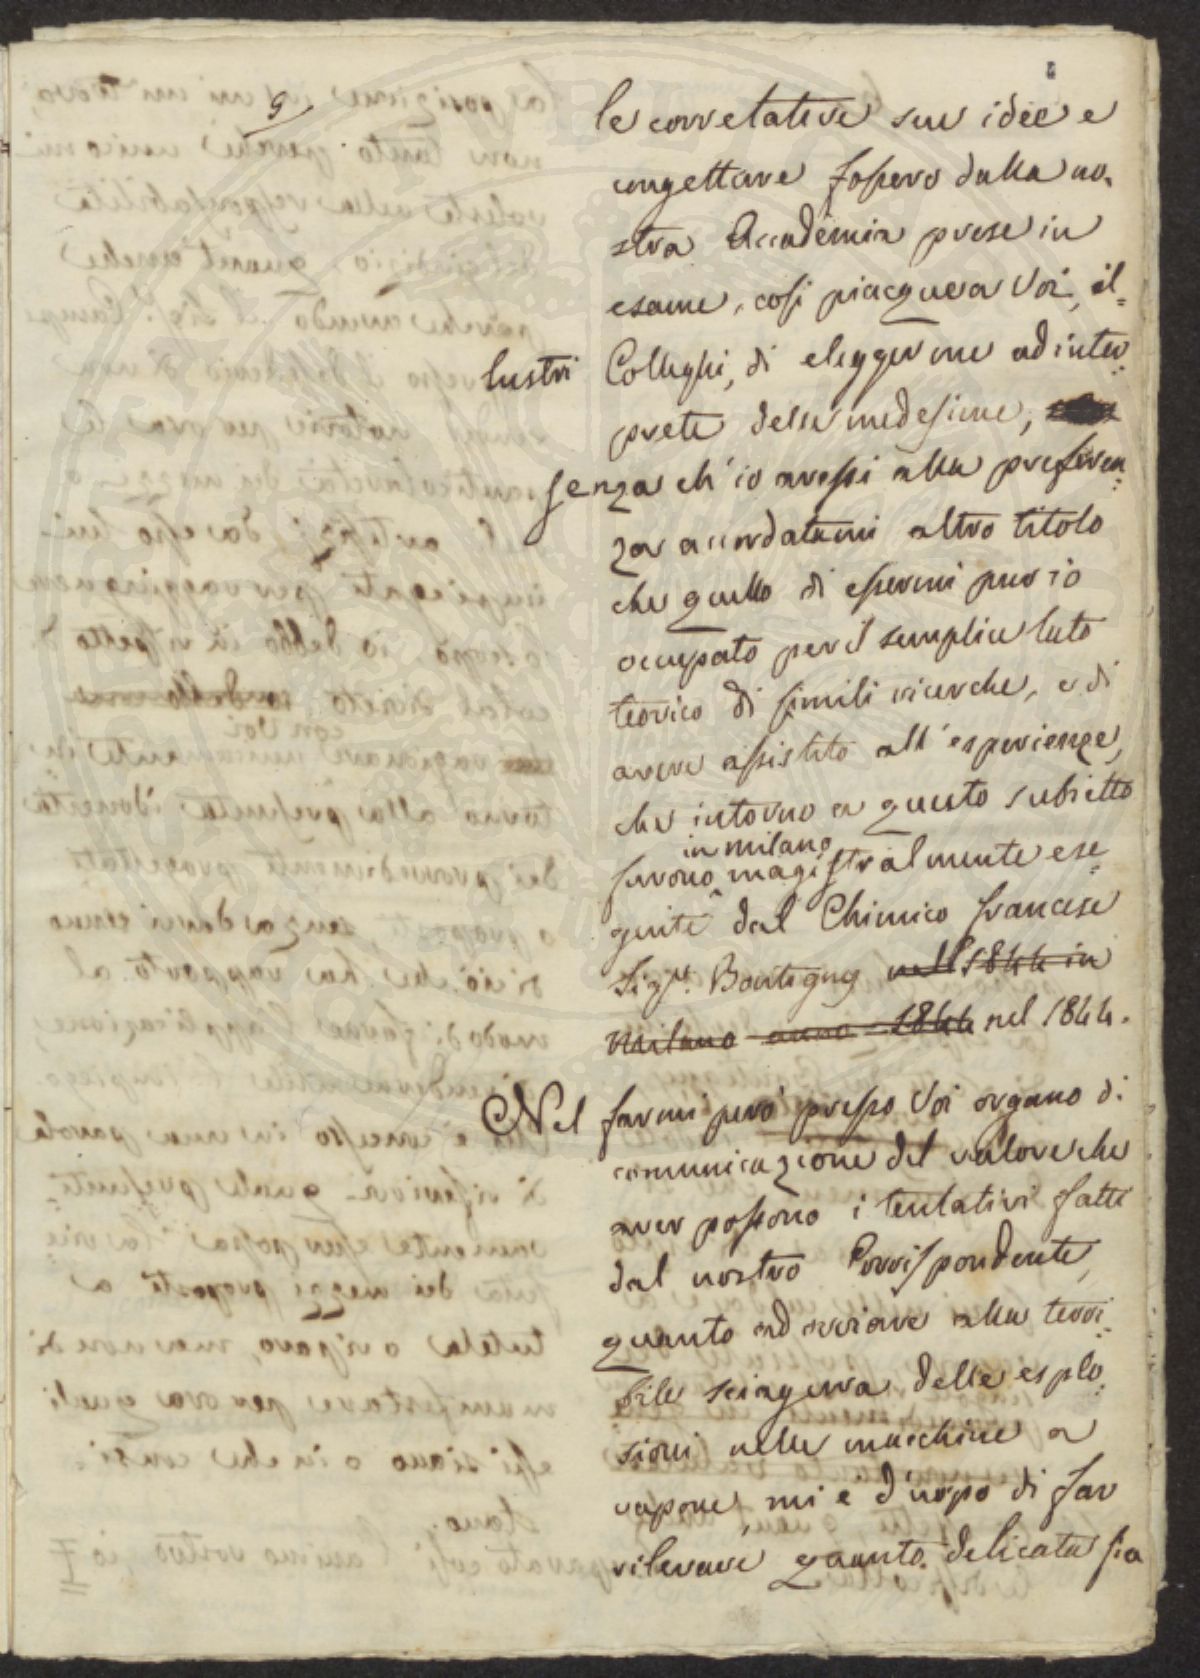 9
le correlative sue idee e
congetture fossero dalla no-
stra Accademia prese in
esame, così piacque a Voi, il=
lustri Colleghi, di eleggerne ad inter-
prete delle medesime,
senza ch'io avessi alla preferen=
za accordatami altro titolo
che quello di essermi pur io
occupato per il semplice lato
teorico di simili ricerche, e di
avere assistito all'esperienze,
che intorno a questo subietto
in milano
furono magistralmente ese-
guite dal Chimico francese
Sigr. Boutigny nell 1844 in
Milano anno 1844 nel 1844.
Nel farmi però presso Voi organo di
comunicazione del valore che
aver possono i tentativi fatti
dal nostro Corrispondente,
quanto ad ovviare alla terri-
bile sciagura delle esplo-
sioni nelle macchine a
vapore, mi è d'uopo di far
rilevare quanto delicata sia